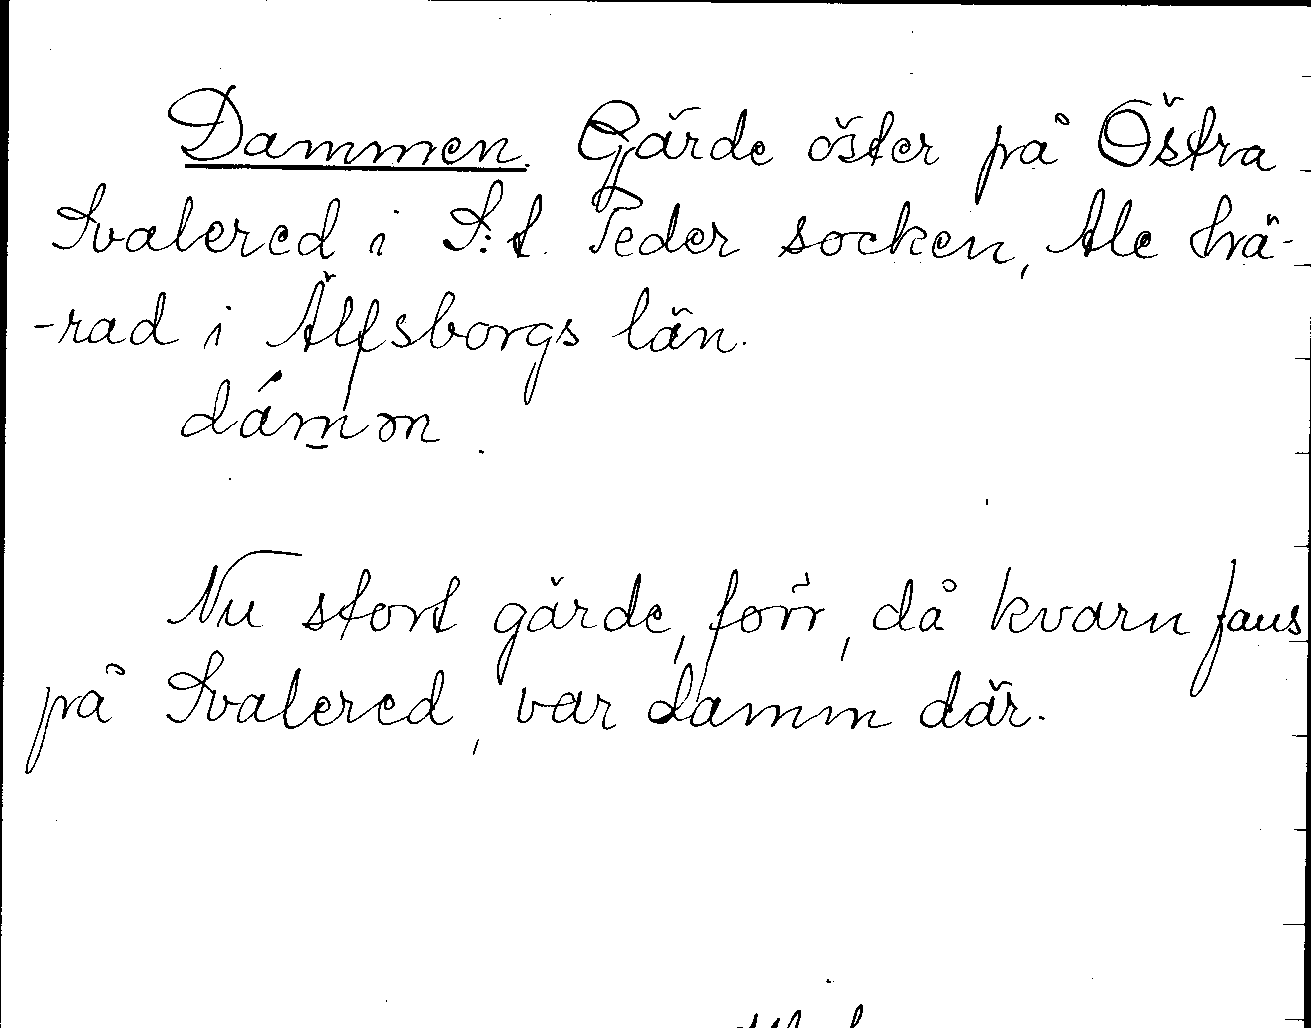 Dammen. Gärde öster på Östra
Svalered i S:t. Peder socken, Ale hä-
-rad i Älfsborgs län.
dámən.
Nu stort gärde, förr, då kvarn fans
på Svalered, var damm där.